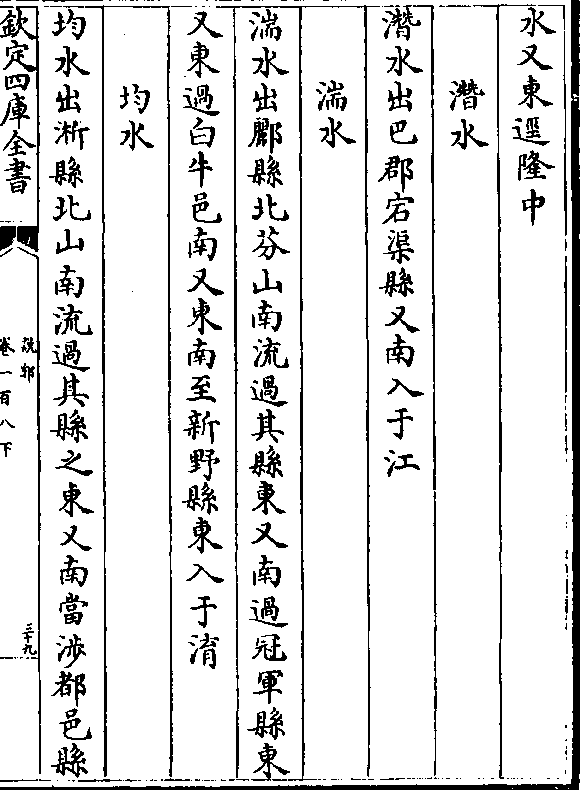 水又東逕隆中
潛水
潛水出巴郡宕渠縣又南入于江
湍水
湍水出酈縣北芬山南流過其縣東又南過冠軍縣東
又東過白牛邑南又東南至新野縣東入于淯
均水
均水出淅縣北山南流過其縣之東又南當涉都邑縣
欽定四庫全書
說郛
卷一百八下
三十九